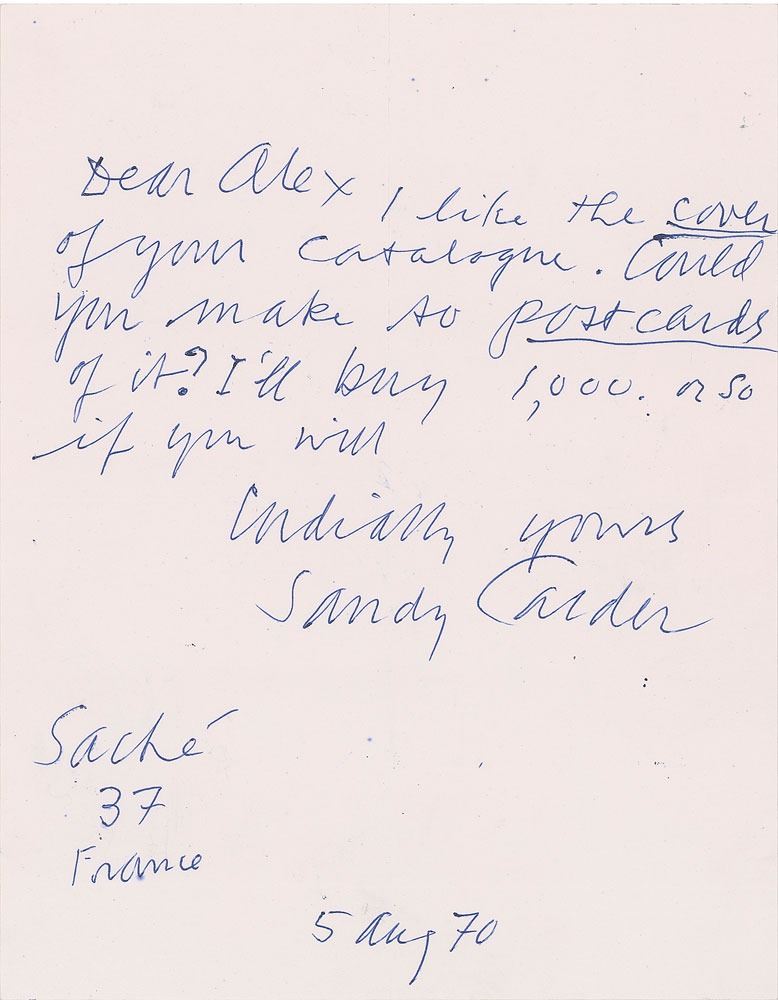 Dear Alex I like the cover
of your catalogue. Could
you make so postcards
of it? I'll buy 1,000. or so
if you will
Cordially yours
Sandy Calder
Saché
37
France
5 Aug 70